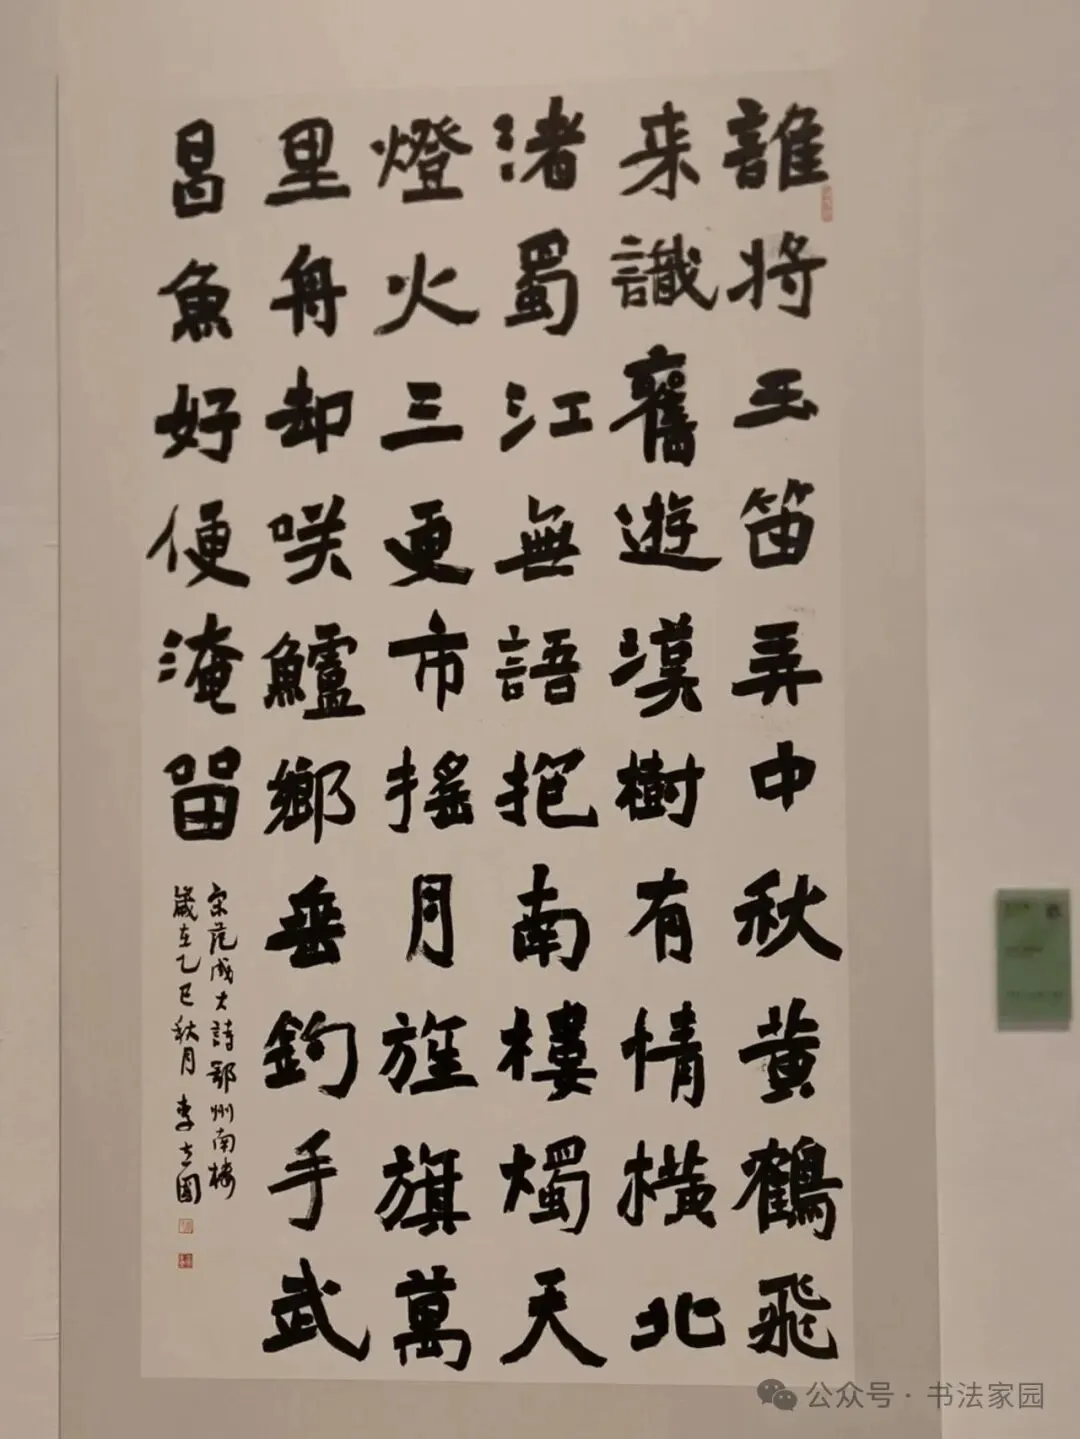 誰將玉笛弄中秋黄鶴飛
来識舊遊漢樹有情橫北
渚蜀江無語抱南樓燭天
燈火三更市摇月旌旗萬
里舟却咲鱸鄉垂釣手武
昌魚好便淹留
宋范成大詩鄂州南楼
歲在乙巳秋月李士國
公众号·书法家园